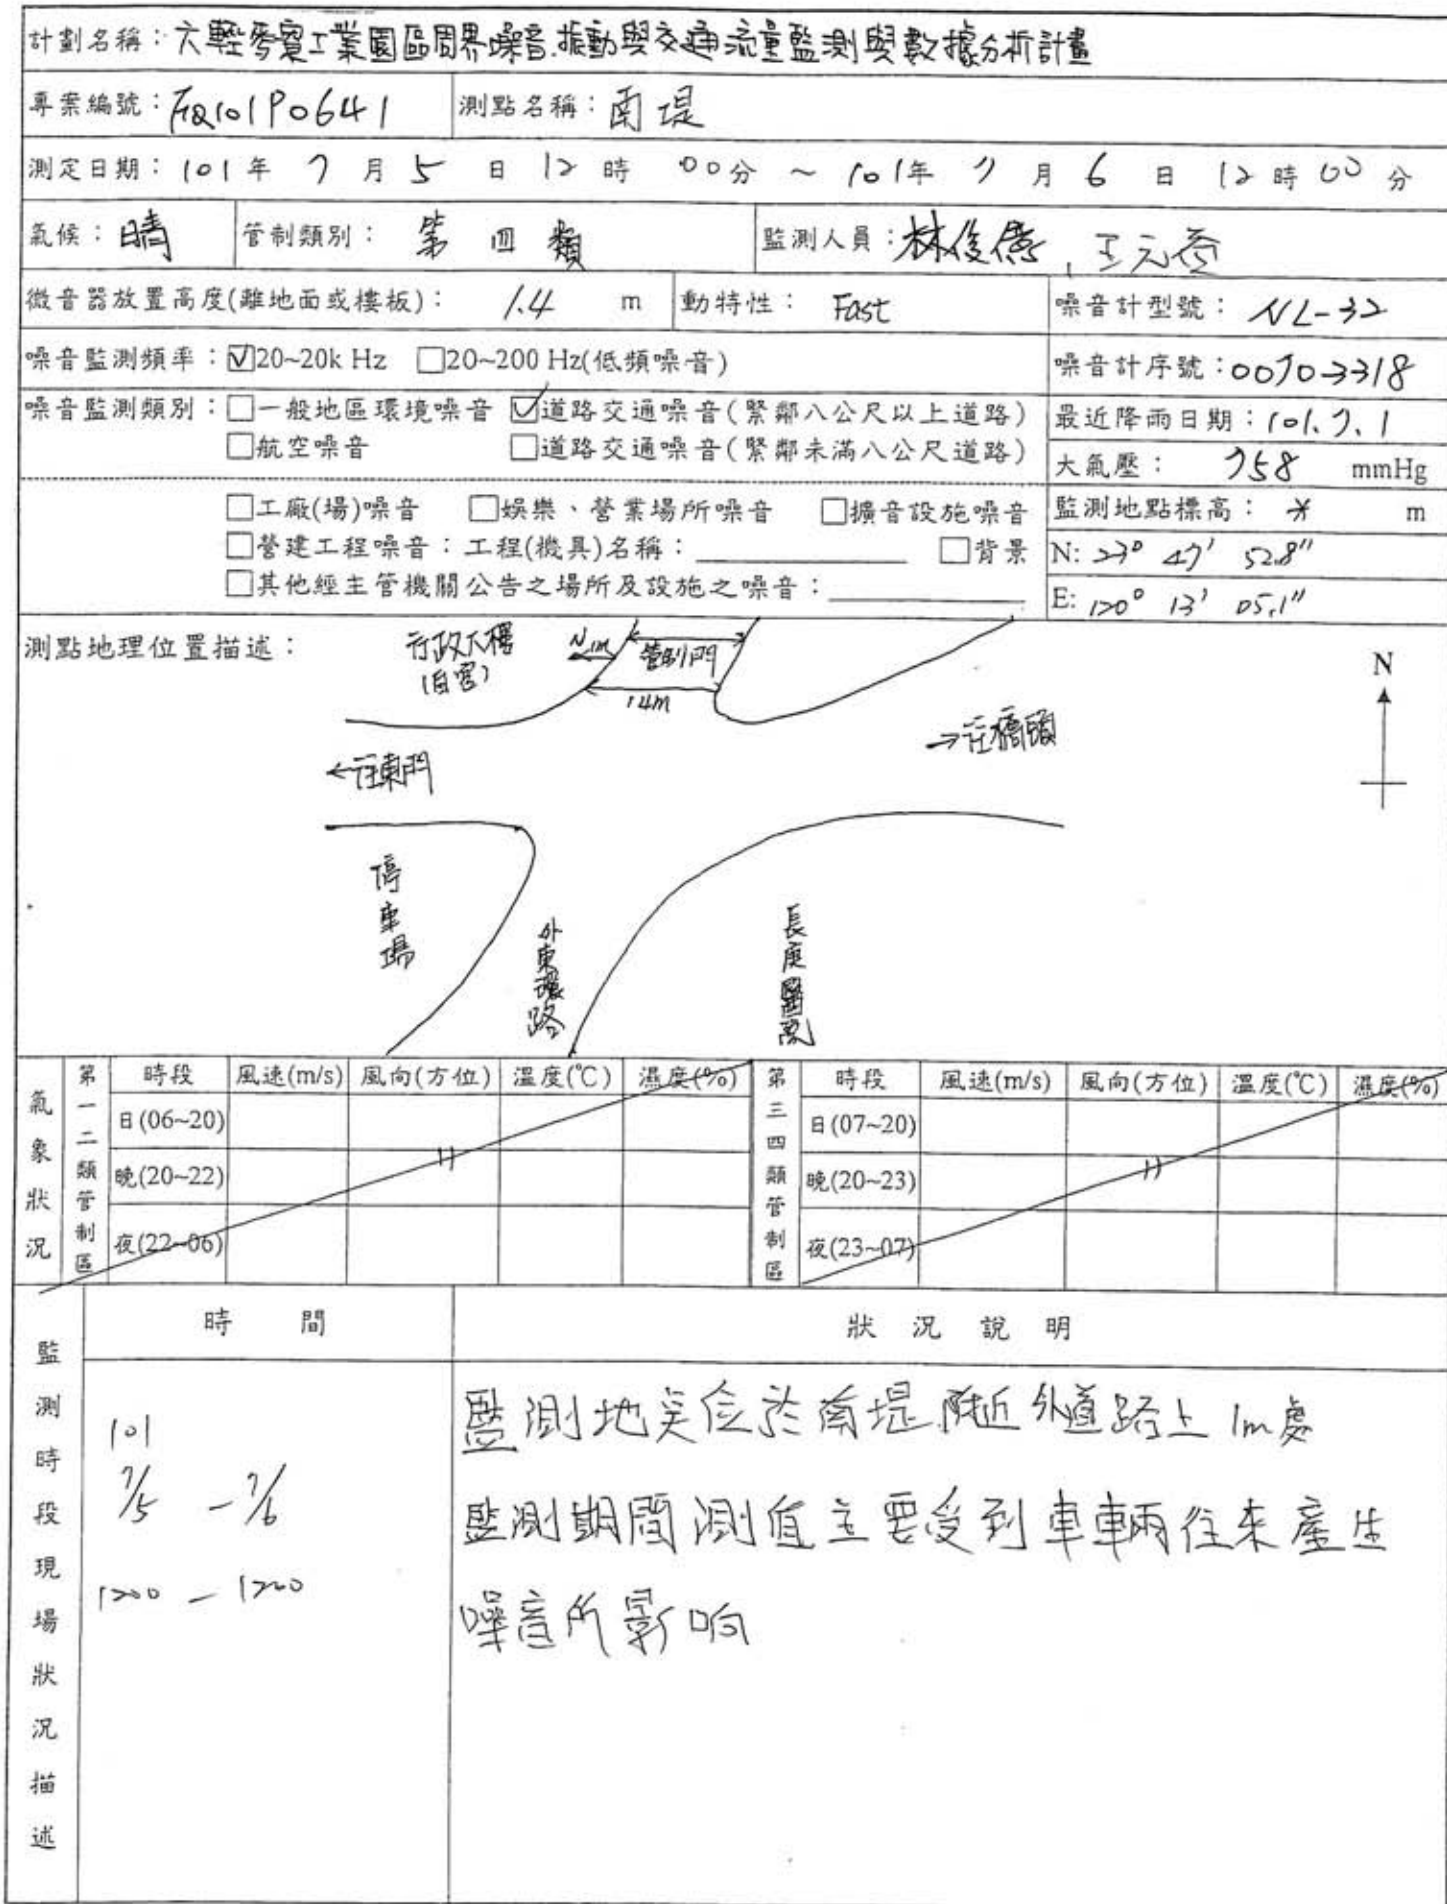 計劃名稱：六輕麥寮工業園區周界噪音.振動與交通流量監測與數據分析計畫
專案編號：FQ101P0641 測點名稱：南堤
測定日期：101年 7 月 5 日 12 時 00分 ~ 101年 7 月 6 日 12 時 00 分
氣候：晴 管制類別： 第 四 類 監測人員：林俊
微音器放置高度(離地面或樓板)： 1.4 m 動特性： Fast 噪音計型號： NL-32
噪音監測頻率：☑20~20k Hz □20~200 Hz(低頻噪音) 噪音計序號：00703318
噪音監測類別：□一般地區環境噪音 ☑道路交通噪音(緊鄰八公尺以上道路) 最近降雨日期：101.7.1
□航空噪音 □道路交通噪音(緊鄰未滿八公尺道路) 大氣壓： 758 mmHg
□工廠(場)噪音 □娛樂、營業場所噪音 □擴音設施噪音 監測地點標高： * m
□營建工程噪音：工程(機具)名稱： □背景 N: 23° 47' 52.8"
□其他經主管機關公告之場所及設施之噪音： E: 120° 13' 05.1"
測點地理位置描述：
行政大樓
(白宮)
1m
管制門
14m
N
→往橋頭
←往東門
停車場
外東環路
長庚醫院
氣象狀況
第一二類管制區 時段 風速(m/s) 風向(方位) 溫度(℃) 濕度(%) 第三四類管制區 時段 風速(m/s) 風向(方位) 溫度(℃) 濕度(%)
日(06~20) 日(07~20)
晚(20~22) 晚(20~23)
夜(22~06) 夜(23~07)
監測時段現場狀況描述
時 間 狀 況 說 明
101
7/5 - 7/6
1200 - 1200
監測地點位於南堤附近外道路上1m處
監測期間測值主要受到車輛往來產生
噪音所影响